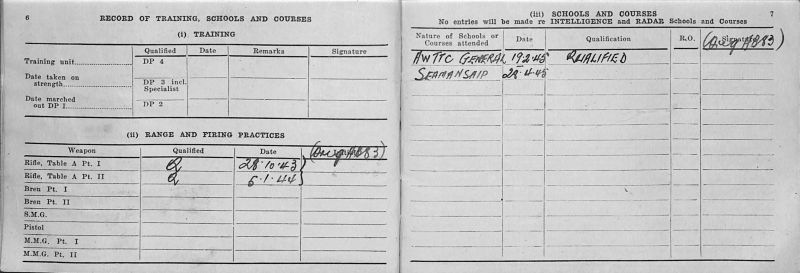 6 RECORD OF TRAINING, SCHOOLS AND COURSES
(i) TRAINING
Qualified Date Remarks Signature
Training unit DP 4
Date taken on strength DP 3 incl. Specialist
Date marched out DP I DP 2
(ii) RANGE AND FIRING PRACTICES
Weapon Qualified Date
Rifle, Table A Pt. I Q 28·10·43
Rifle, Table A Pt. II Q 5·1·44
Bren Pt. I
Bren Pt. II
S.M.G.
Pistol
M.M.G. Pt. I
M.M.G. Pt. II
(iii) SCHOOLS AND COURSES 7
No entries will be made re INTELLIGENCE and RADAR Schools and Courses
Nature of Schools or Courses attended Date Qualification R.O. Signature
AWTTC GENERAL 19·2·45 QUALIFIED
SEAMANSAIP 28·4·45